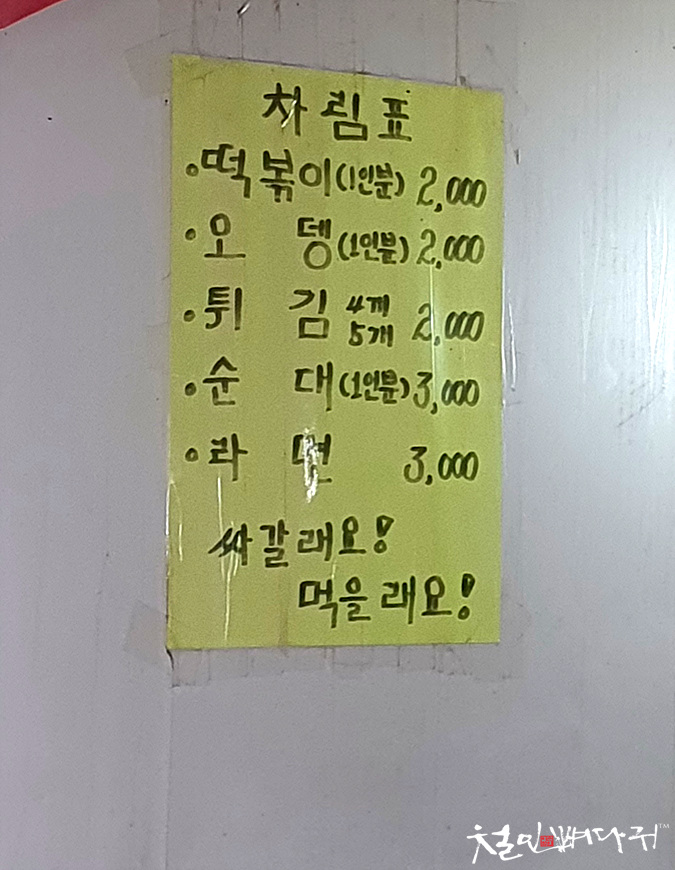 차림표
·떡볶이(1인분) 2,000
·오 뎅(1인분) 2,000
·튀 김 4개 5개 2,000
·순 대(1인분) 3,000
·라 면 3,000
싸갈래요!
먹을래요!
철민뼈다귀™